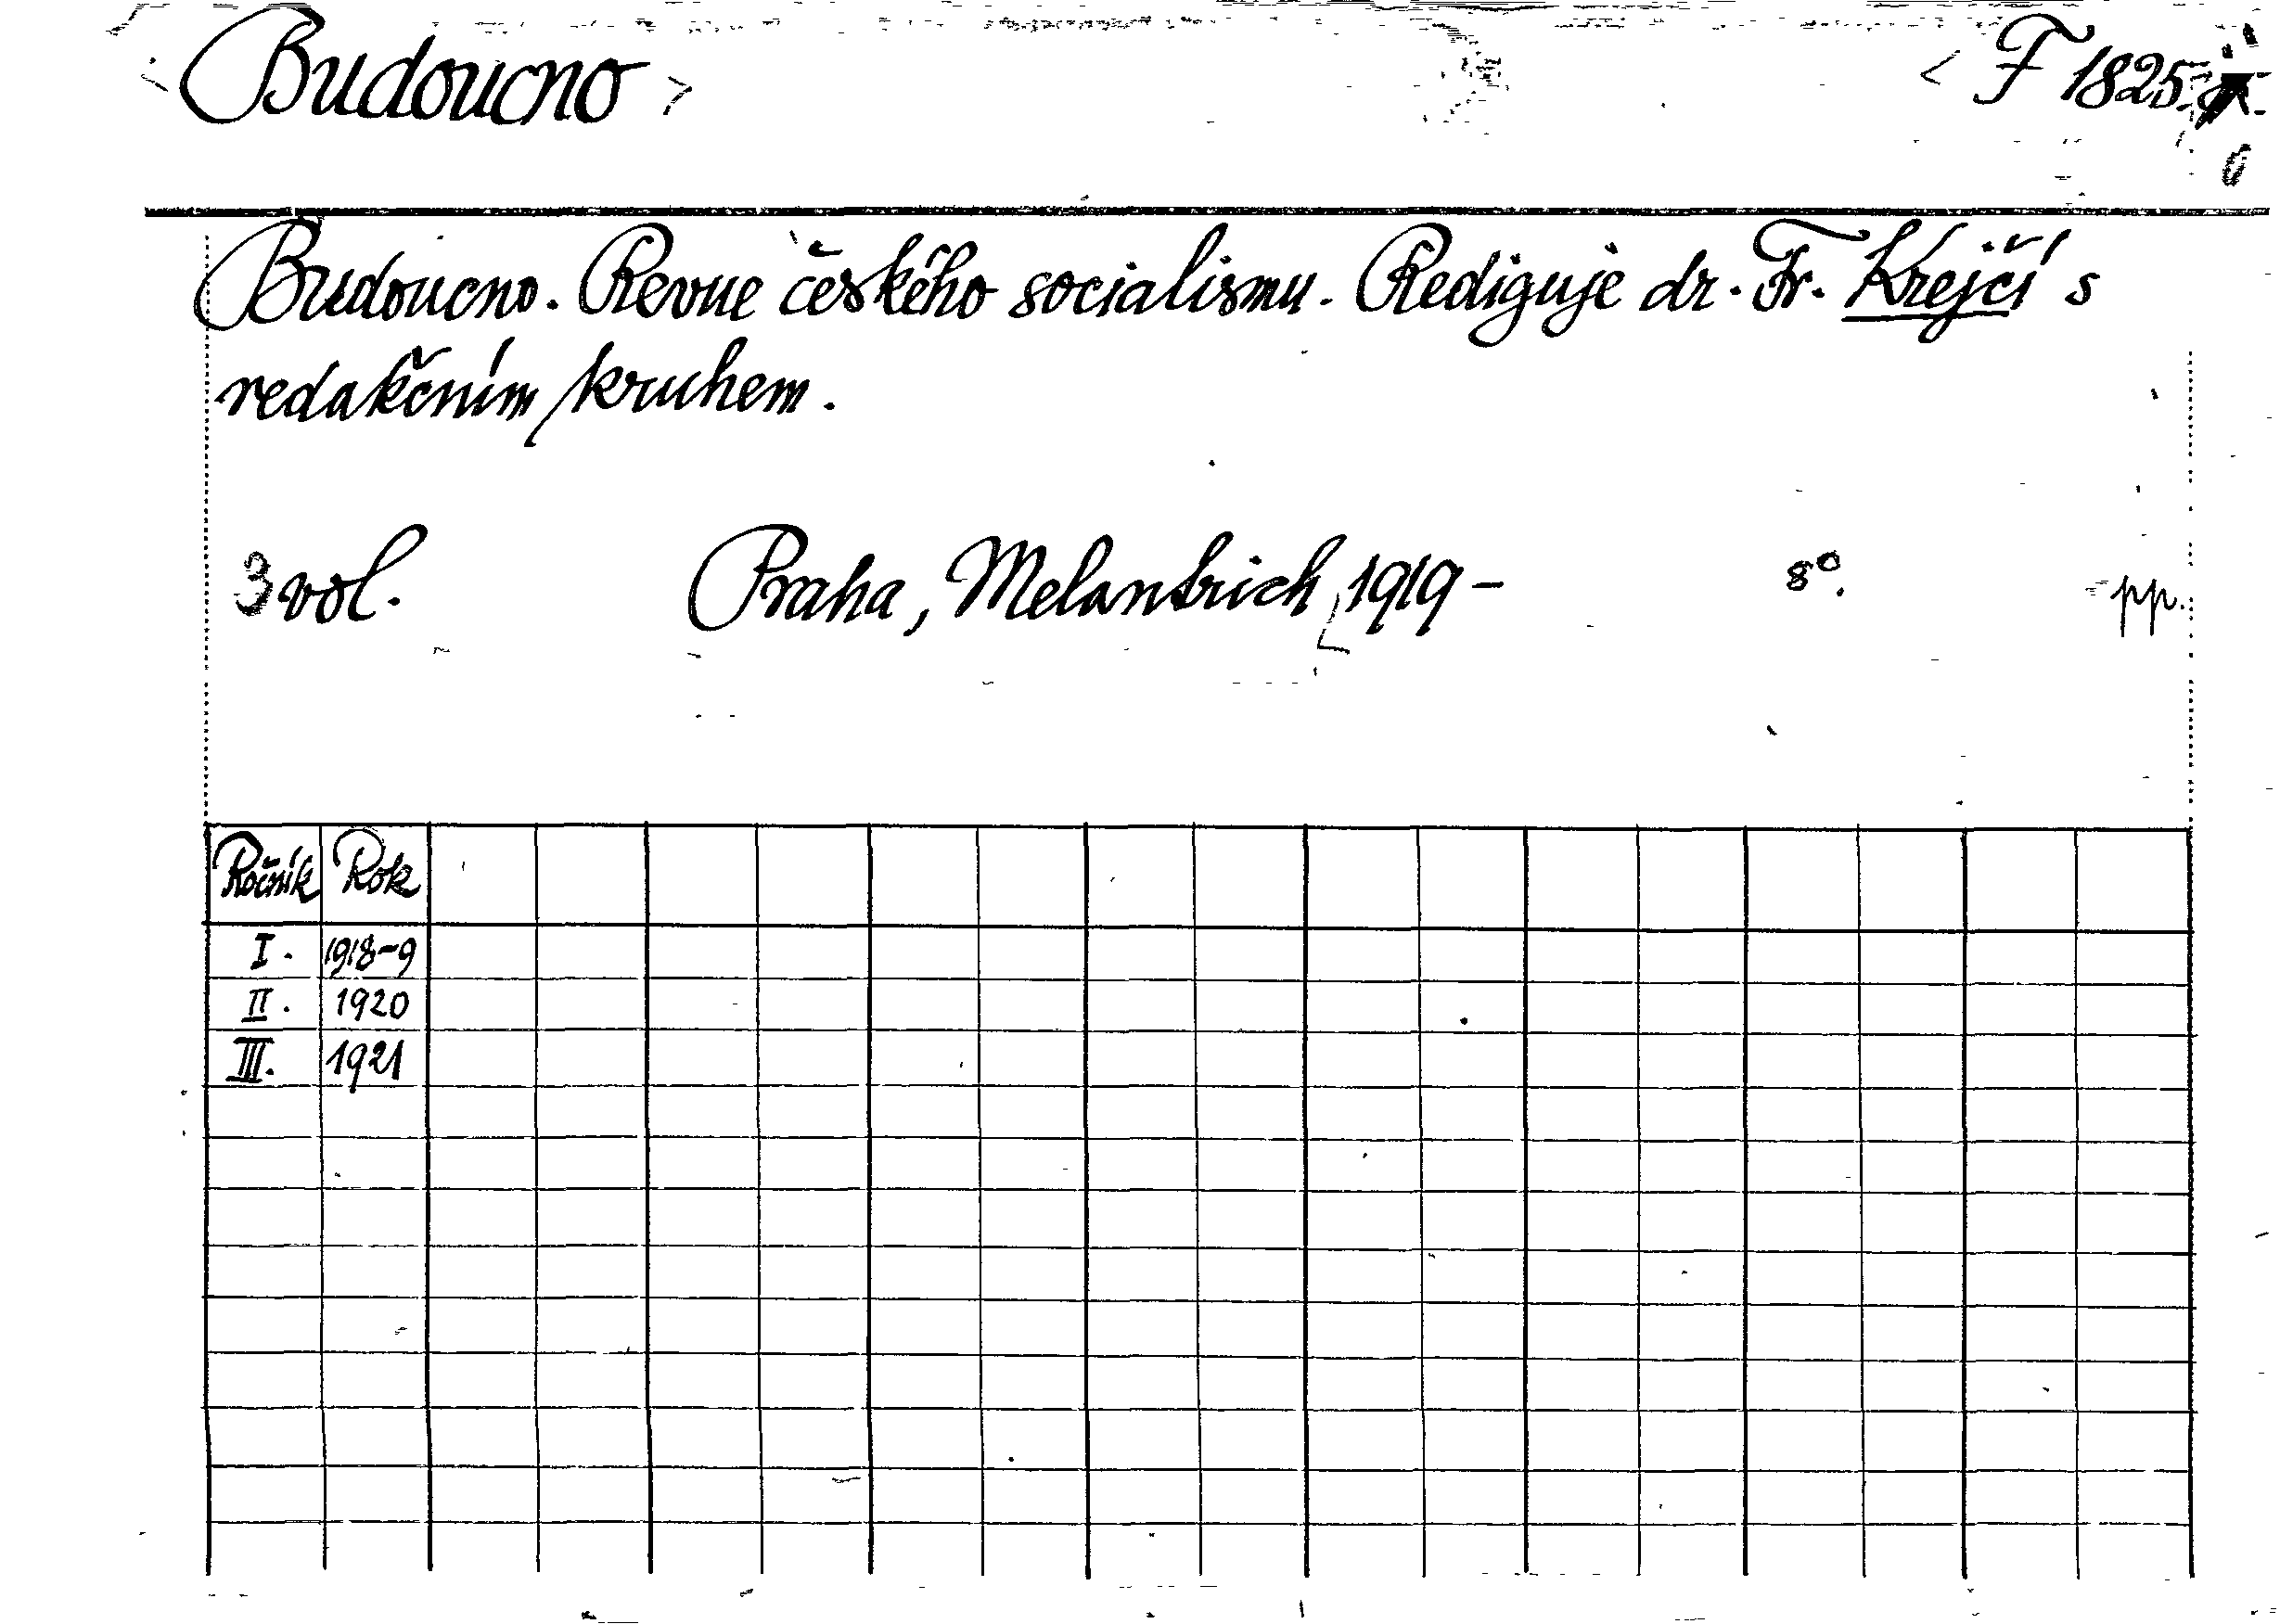 Budoucno F 1825
Budoucno. Revue českého socialismu. Rediguje dr. Fr. Krejčí s
redakčním kruhem.
3 vol. Praha, Melantrich, 1919– 8°. pp.
Ročník Rok
I. 1918–9
II. 1920
III. 1921